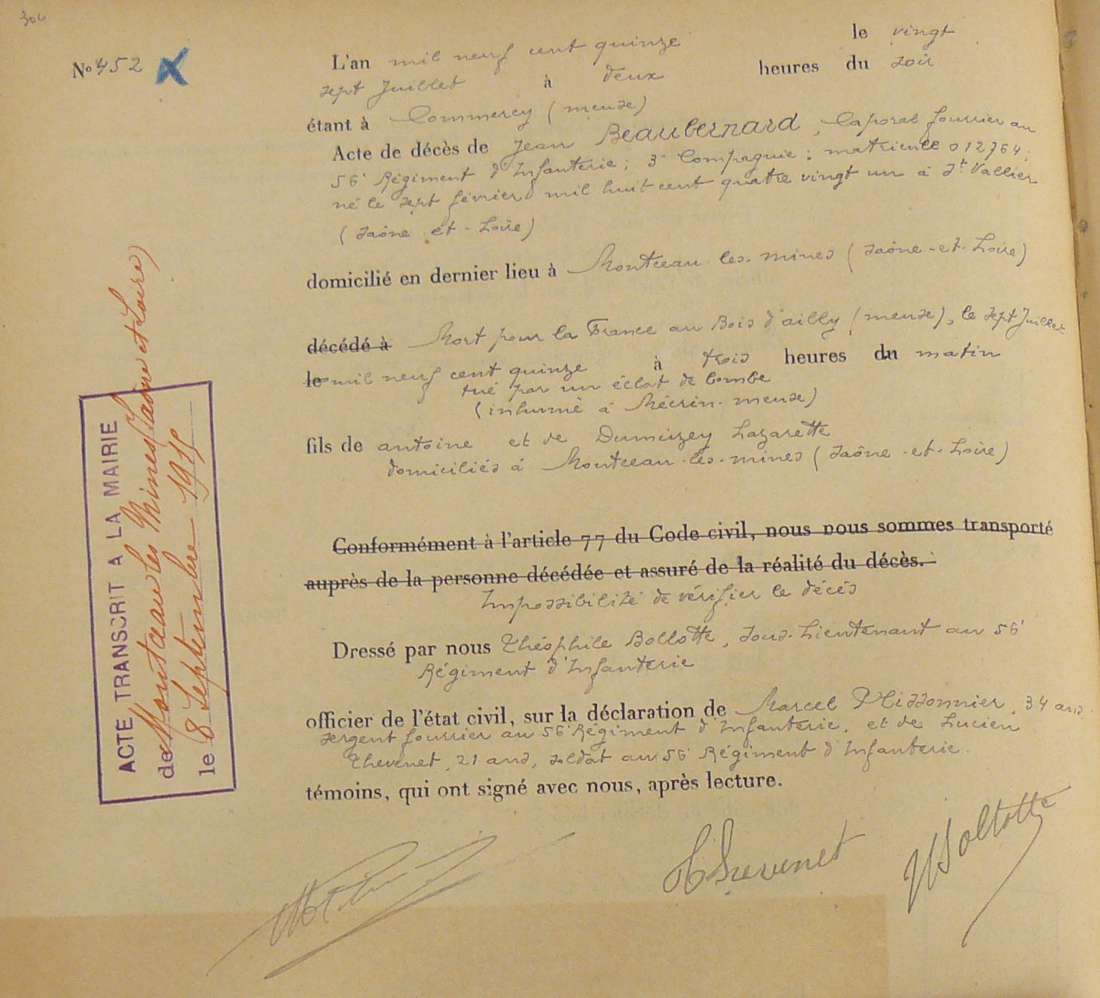 306
N° 452 X
L'an mil neuf cent quinze le vingt
sept Juillet à deux heures du soir
étant à Commercy (meuse)
Acte de décès de Jean Beaubernard, Caporal fourrier au
56e Régiment d'Infanterie; 3e Compagnie; matricule 012764;
né le sept février mil huit cent quatre vingt un à St Vallier
(Saône-et-Loire)
domicilié en dernier lieu à Montceau-les-mines (Saône-et-Loire)
décédé à Mort pour la France au Bois d'ailly (meuse), le sept Juillet
le mil neuf cent quinze à trois heures du matin
tué par un éclat de bombe
(inhumé à Mécrin-meuse)
fils de antoine et de Dumizey Lazarette
domiciliés à Montceau-les-mines (Saône-et-Loire)
Conformément à l'article 77 du Code civil, nous nous sommes transporté
auprès de la personne décédée et assuré de la réalité du décès.
Impossibilité de vérifier le décès
Dressé par nous Théophile Bollotte, sous-Lieutenant au 56e
Régiment d'Infanterie
officier de l'état civil, sur la déclaration de Marcel Plissonnier, 34 ans
sergent fourrier au 56e Régiment d'Infanterie, et de Lucien
Thevenet, 21 ans, soldat au 56e Régiment d'Infanterie.
témoins, qui ont signé avec nous, après lecture.
Thevenet
Bollotte
ACTE TRANSCRIT A LA MAIRIE
de Montceau les Mines (Saône et Loire)
le 8 Septembre 1915